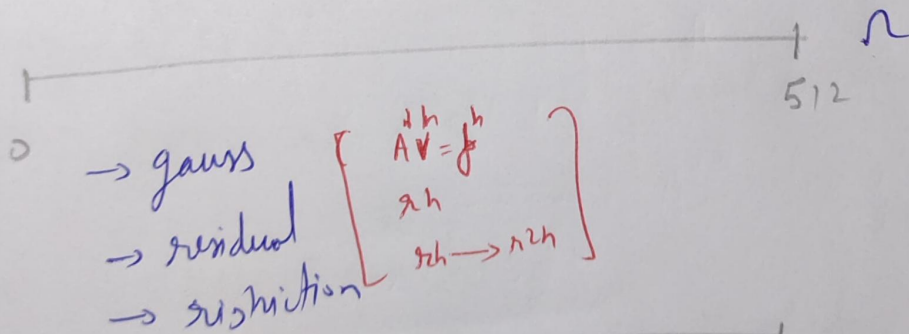 Ω
0 512
→ gauss
→ residual
→ ristriction
A^h V^h = f^h
r^h
r^h → r^2h